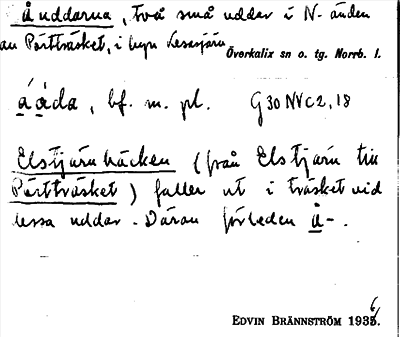 Åuddarna, två små uddar i N-änden
av Pärtträsket, i byn Lesesjärv
Överkalix sn o. tg. Norrb. l.
å´å´da, bf. m. pl. G 30 NV c 2, 18
Elstjärnbäcken (från Elstjärn till
Pärtträsket) faller ut i träsket vid
dessa uddar. Därav förleden å-.
EDVIN BRÄNNSTRÖM 1936.